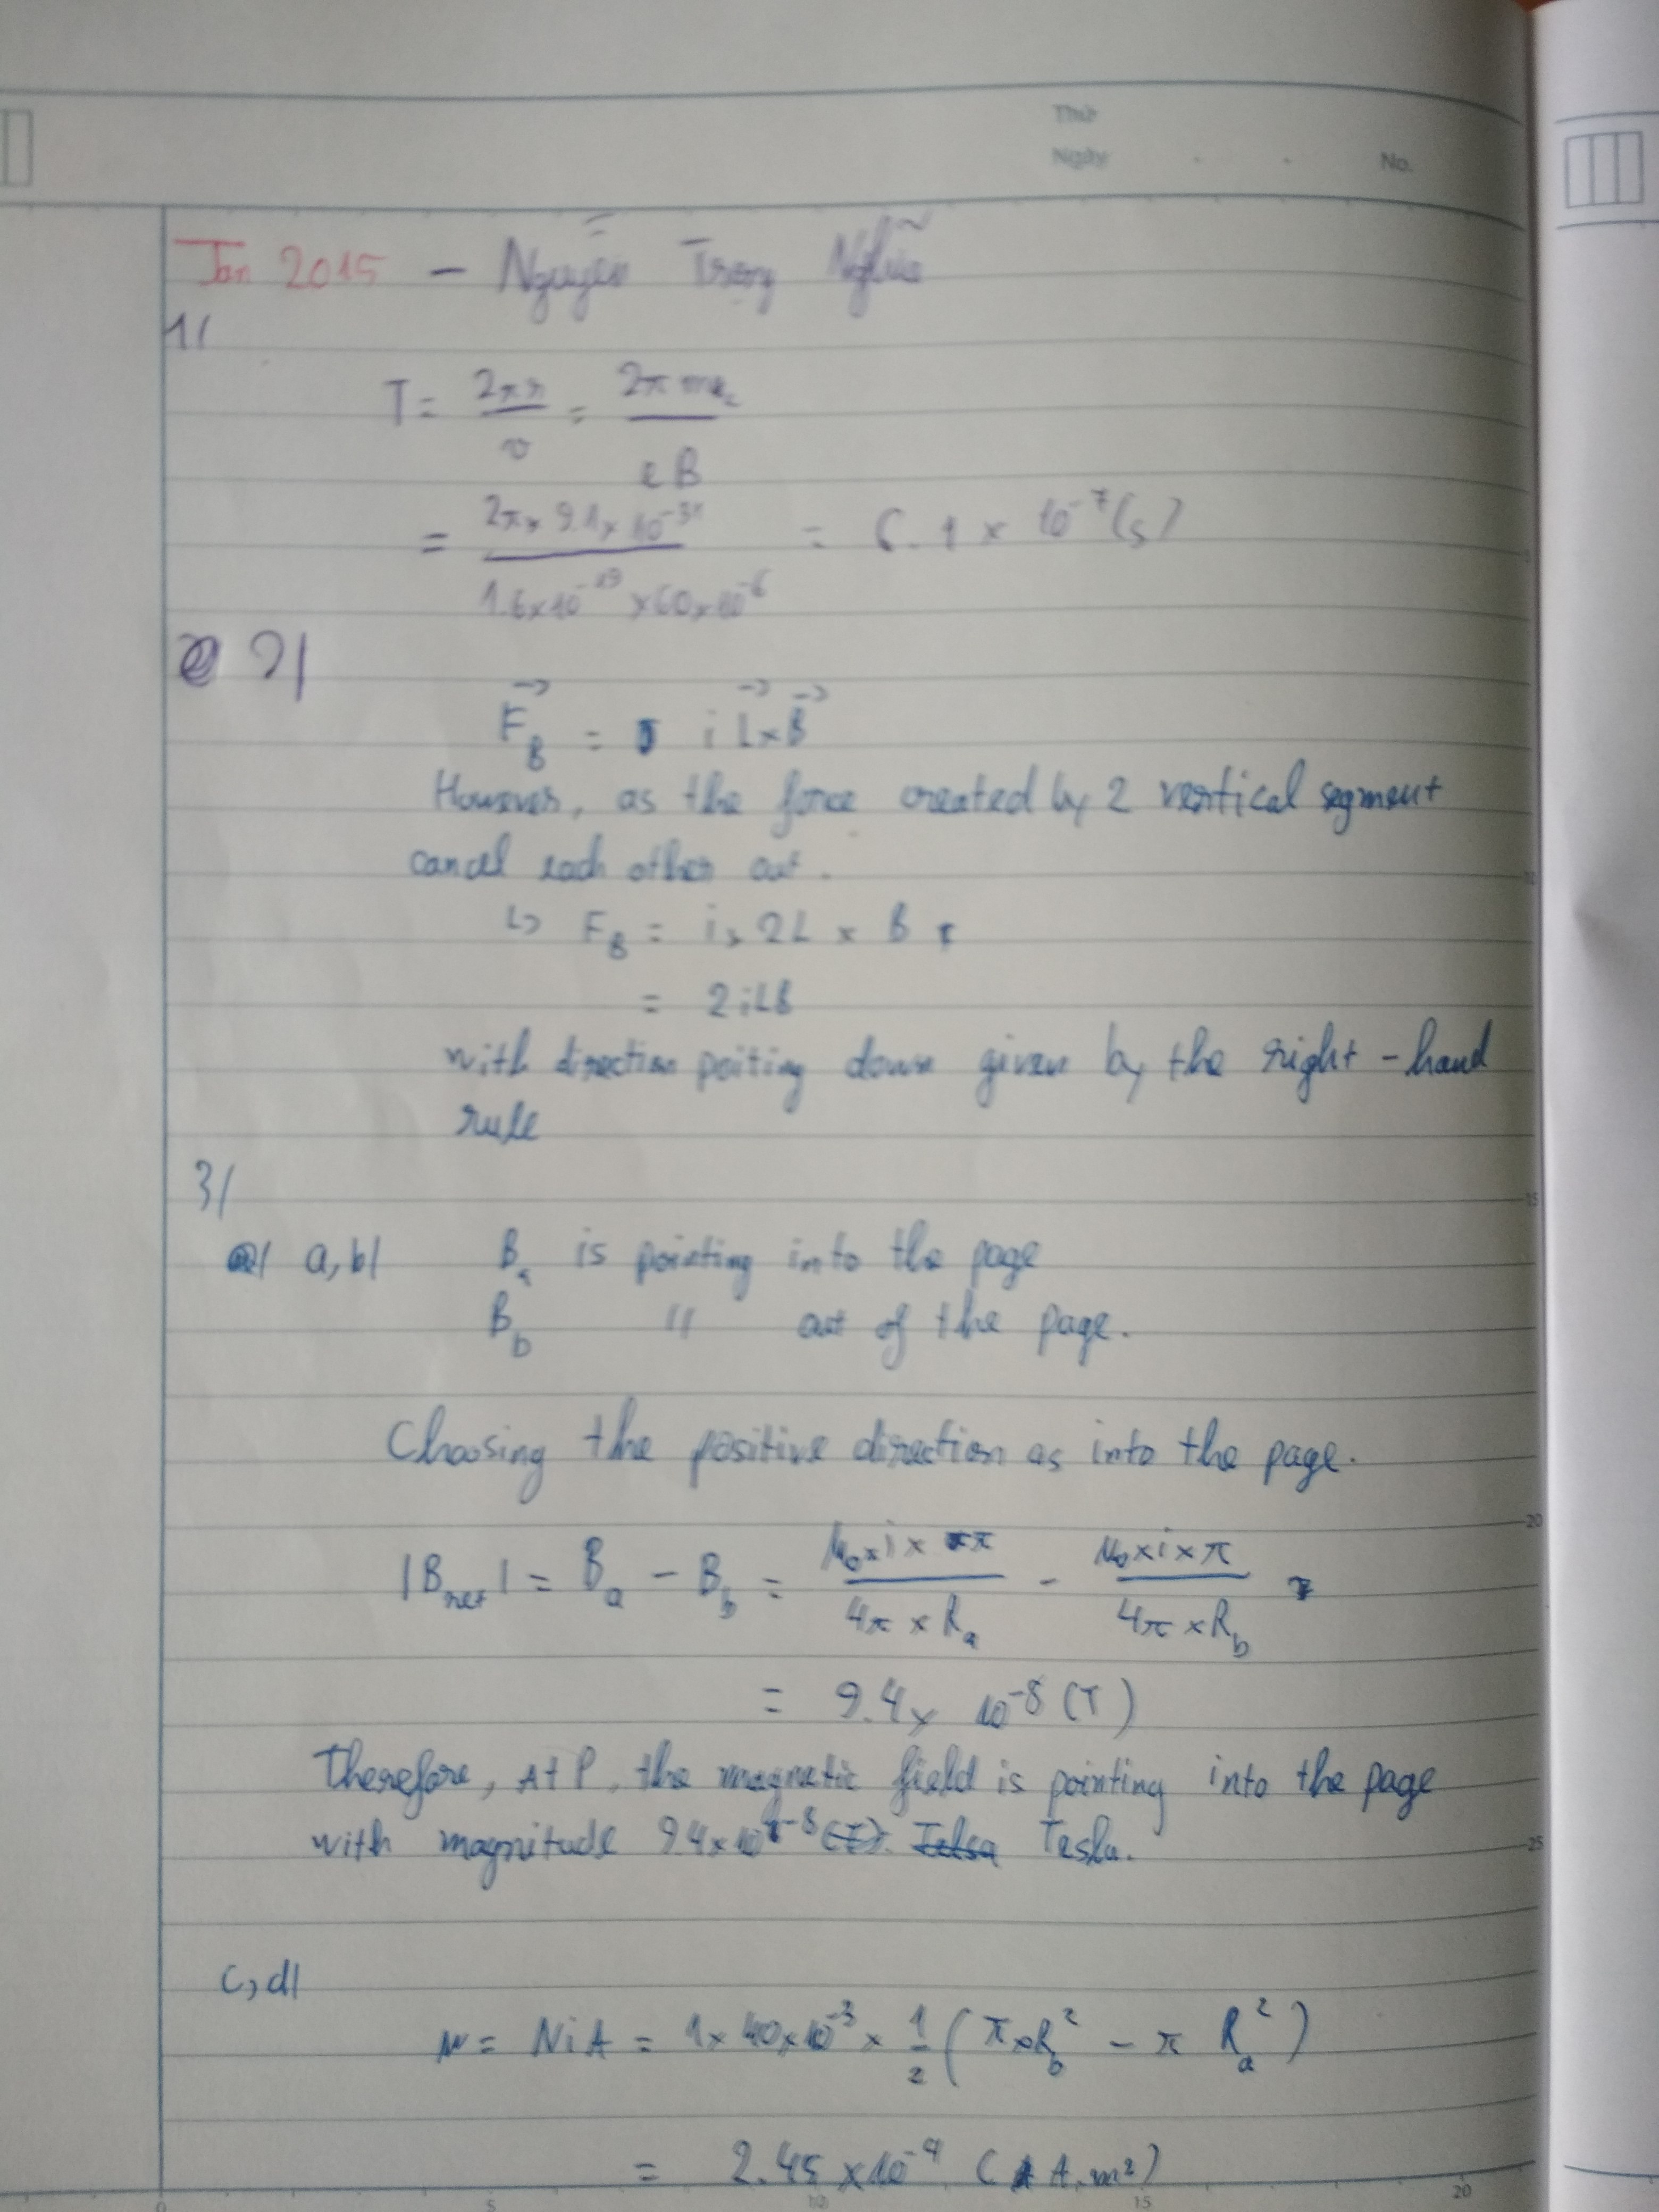 Thứ
Ngày . . No.
Jan 2015 - Nguyễn Trọng Nghĩa
1/
T = 2πr / v = 2π me / eB
= 2π × 9.1 × 10^-31 / 1.6×10^-19 × 60×10^-6 = 6.1 × 10^-7 (s)
2/
F_B = i L × B
However, as the force created by 2 vertical segment
cancel each other out.
↳ F_B = i × 2L × B
= 2iLB
with direction poiting down given by the right-hand
rule
3/
a, b/ B_a is pointing into the page
B_b " out of the page.
Choosing the positive direction as into the page.
|B_net| = B_a - B_b = μ0 × i × π / 4π × R_a - μ0 × i × π / 4π × R_b
= 9.4 × 10^-8 (T)
Therefore, At P, the magnetic field is pointing into the page
with magnitude 9.4 × 10^-8 (T). Telsa Tesla.
c, d/
μ = NiA = 1 × 40 × 10^-3 × 1/2 (π × R_b^2 - π R_a^2)
= 2.45 × 10^-4 (A.m²)
0 5 10 15 20
10
15
20
25